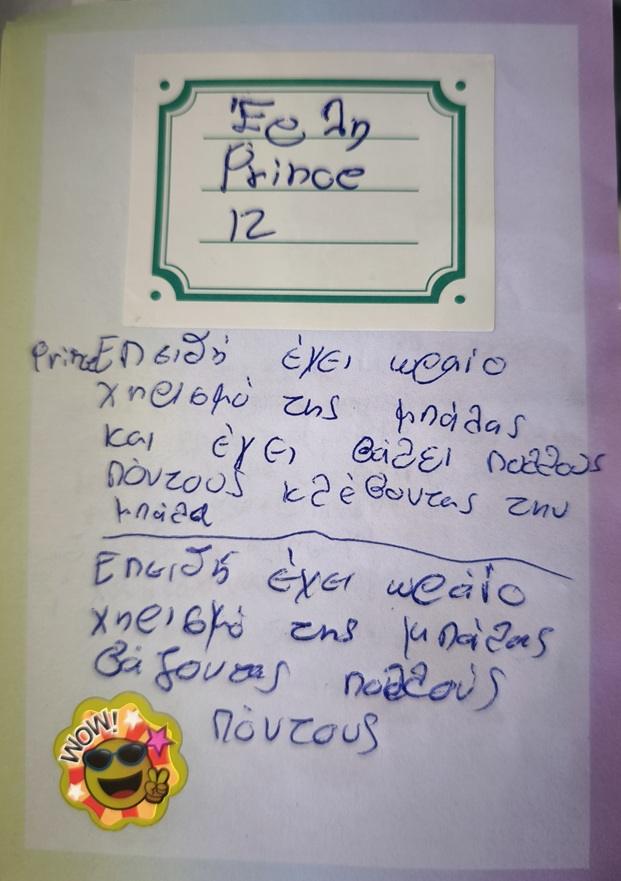 Έρλη
Prince
12
Prince Επειδή έχει ωραίο
χηρισμό της μπάλας
και έχει βάλει πολλούς
πόντους κλέβοντας την
μπάλα
Επειδή έχει ωραίο
χηρισμό της μπάλας
βάζοντας πολλούς
πόντους
WOW!